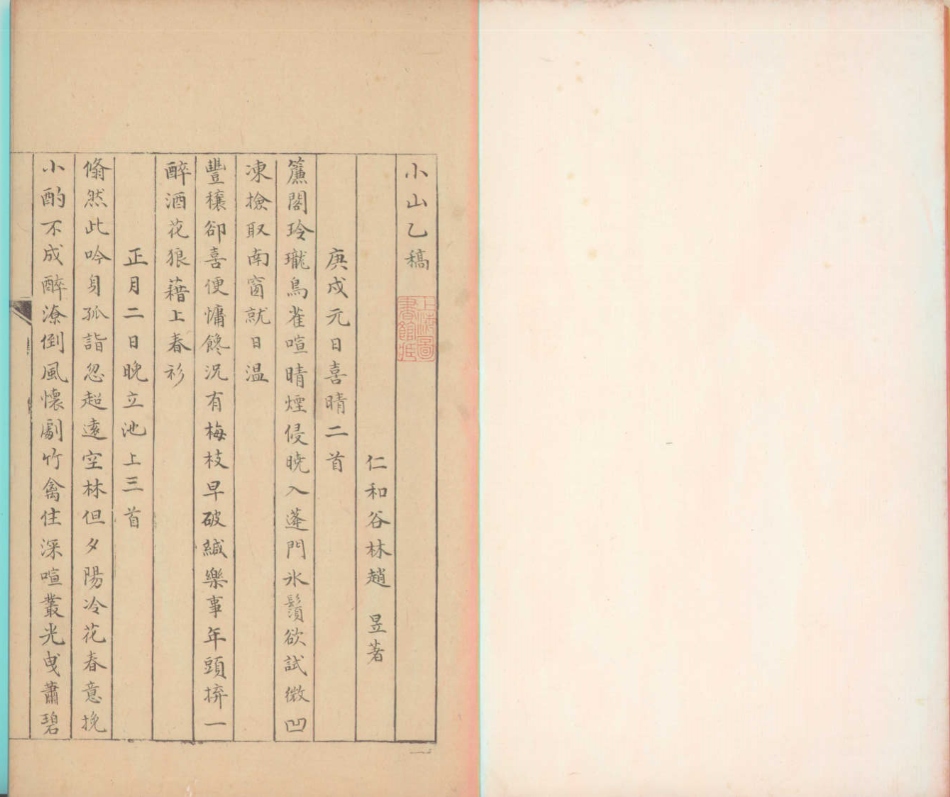 小山乙稿
上海圖書館藏
仁和谷林趙 昱著
庚戌元日喜晴二首
簾閣玲瓏鳥雀喧晴煙侵曉入蓬門氷鬚欲試微凹
凍撿取南窗就日温
豐穰卻喜便慵饞况有梅枝早破緘樂事年頭拚一
醉酒花狼藉上春衫
正月二日晚立池上三首
翛然此吟身孤詣忽超遠空林但夕陽冷花春意挽
小酌不成醉潦倒風懷劇竹禽住深喧叢光曳蕭碧
一